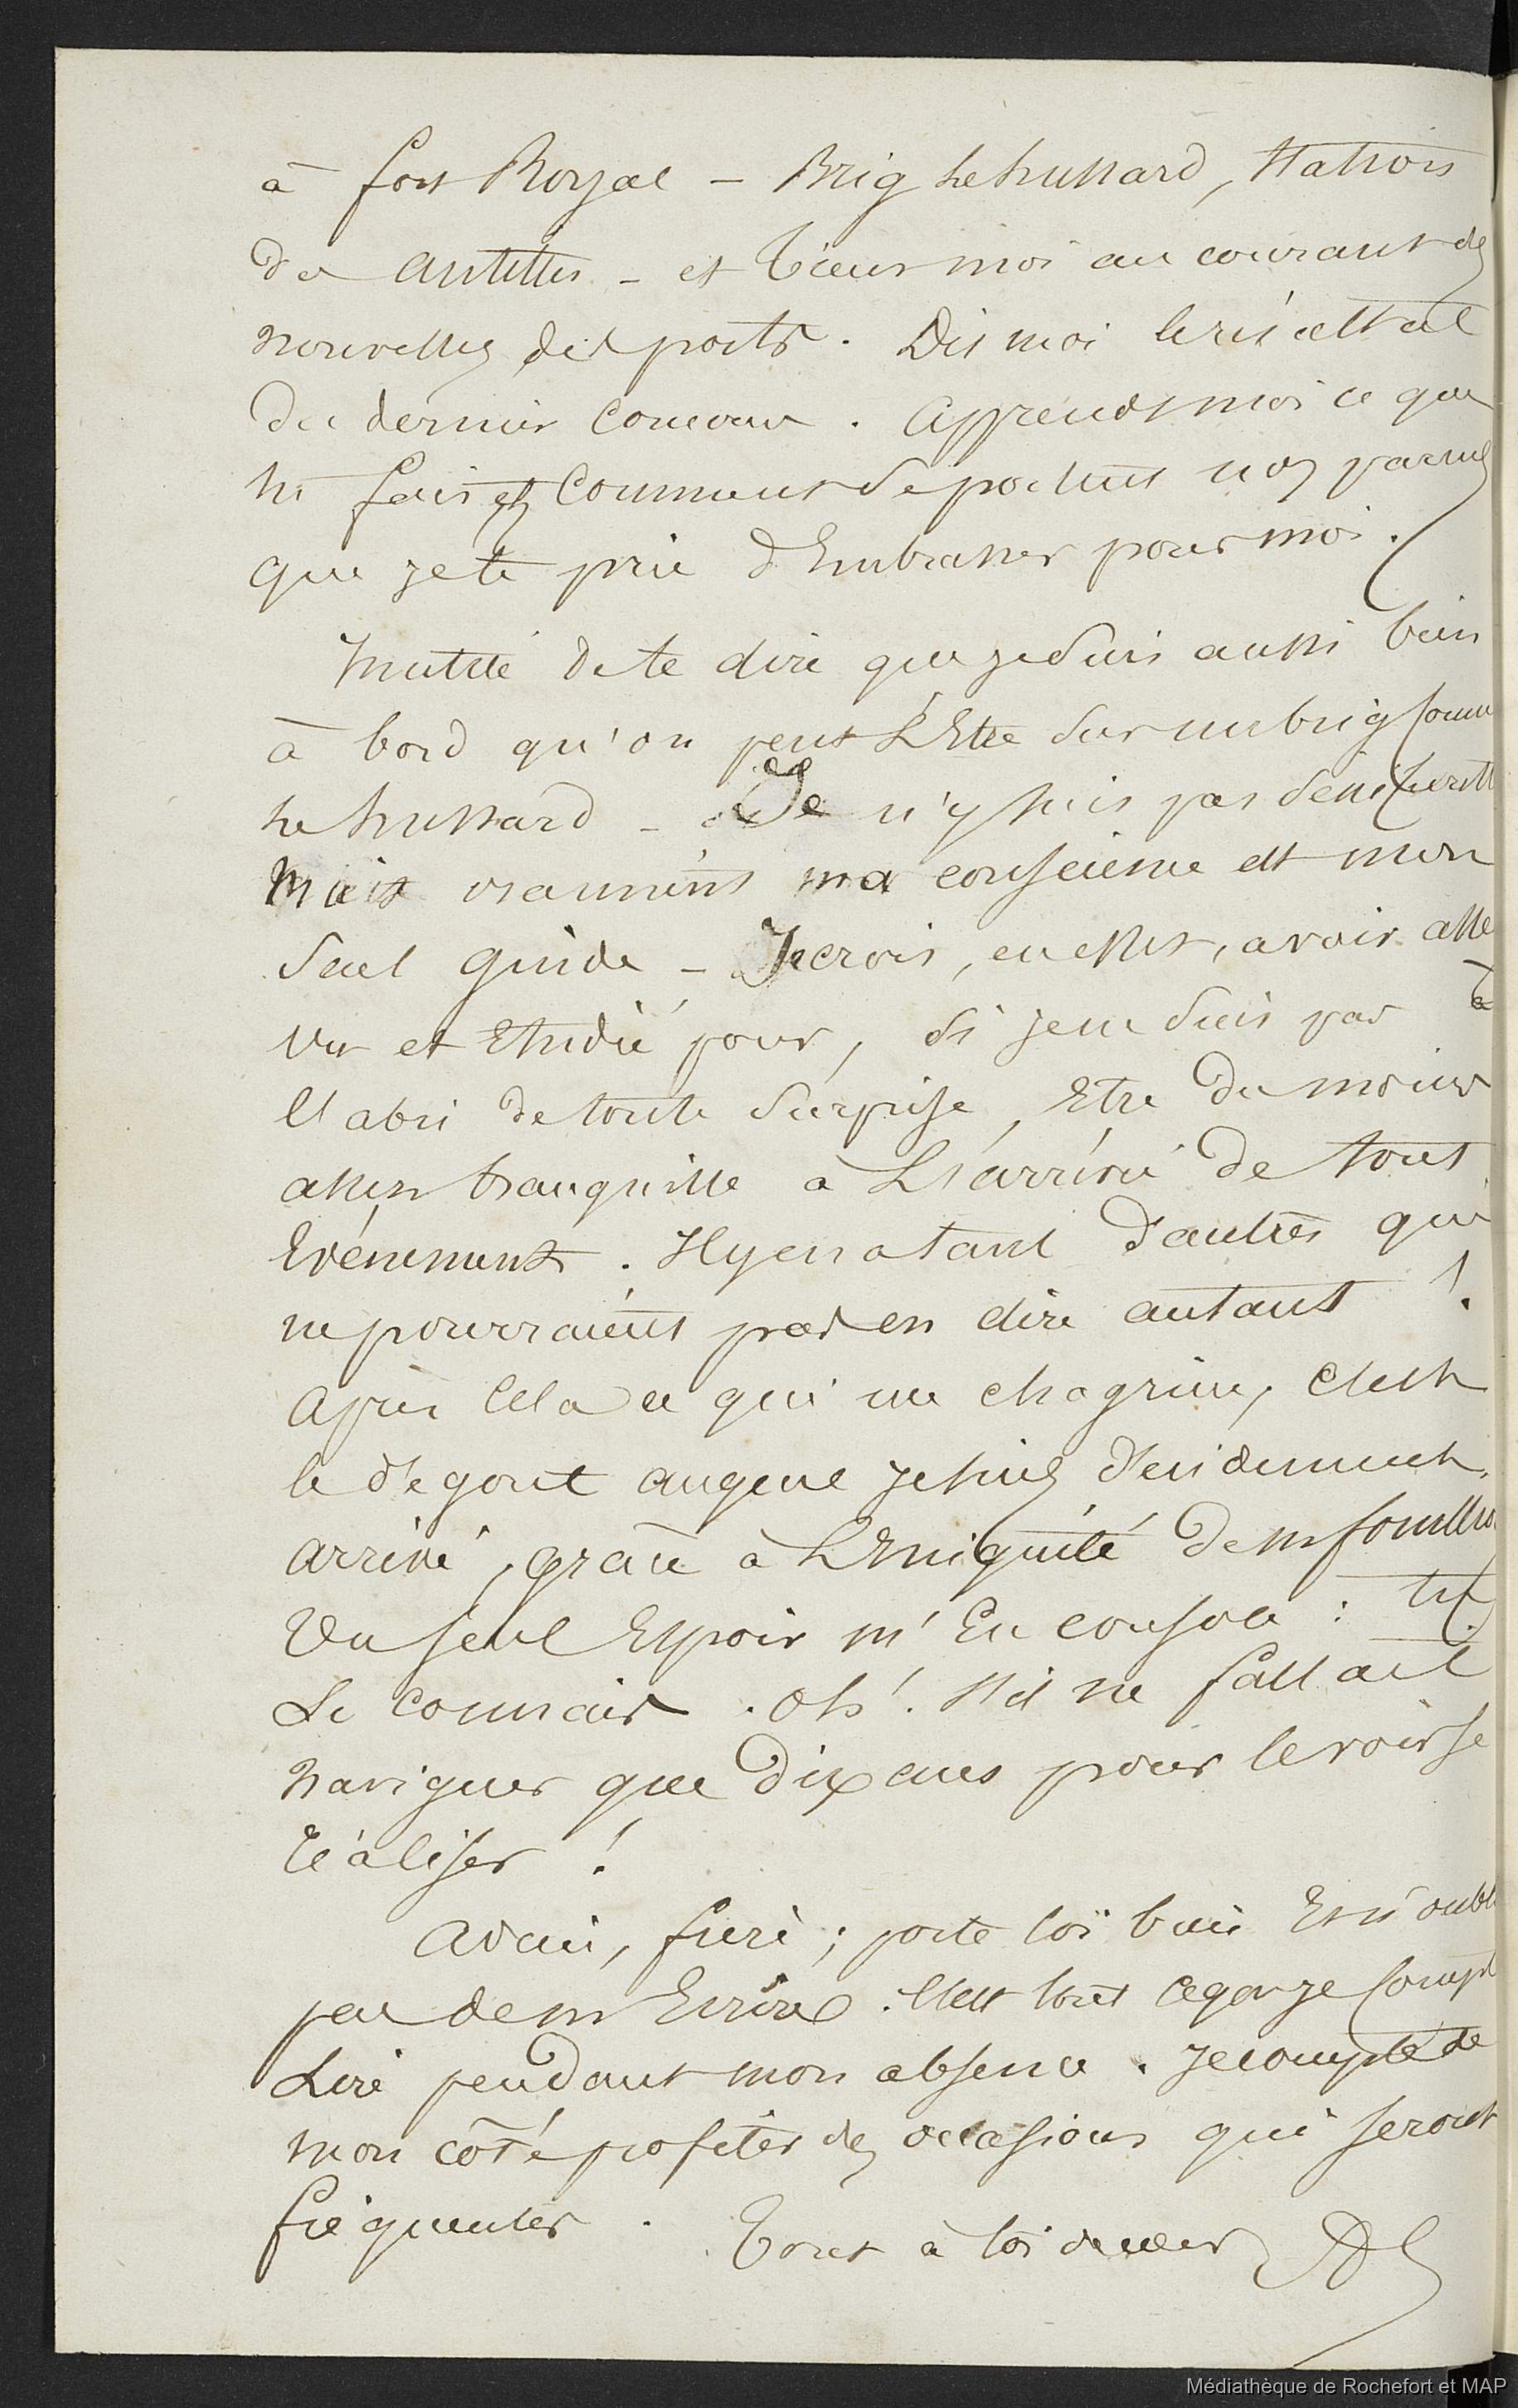 à fort Royal – Brig Le hussard, Station
des antilles – et tiens moi au courant des
nouvelles des ports. Dis moi le résultat
du dernier Concours. Apprends moi ce que
tu fais et Comment se portent nos parents
que je te prie d'Embrasser pour moi.
Inutile de te dire que je suis aussi bien
à bord qu'on peut L'Etre sur un brig comm
Le hussard – Je n'y suis pas
mais vraiment ma conscience est mon
seul guide – Je crois, en effet, avoir asse
vu et Etudié pour, si je ne suis pas à
l'abri de toute surprise, Etre du moins
assez tranquille à L'arrivée de tout
Evénement. Il y en a tant d'autres qui
ne pourraient pas en dire autant !
Après cela ce qui me chagrine, c'est
le dégout auquel je suis
arrivé, grâce à L'Eniquité de
Un seul Espoir m'En console : tu
Le connais. Oh ! s'il ne fallait
naviguer que dix ans pour le voir se
réaliser !
Adieu, frère ; porte toi bien Et n'oubl
pas de m'Ecrire. C'est tout ce que je compt
Lire pendant mon absence. Je compte de
mon côté profiter des occasions qui seront
fréquentes.
Tout à toi de cœur
Médiathèque de Rochefort et MAP